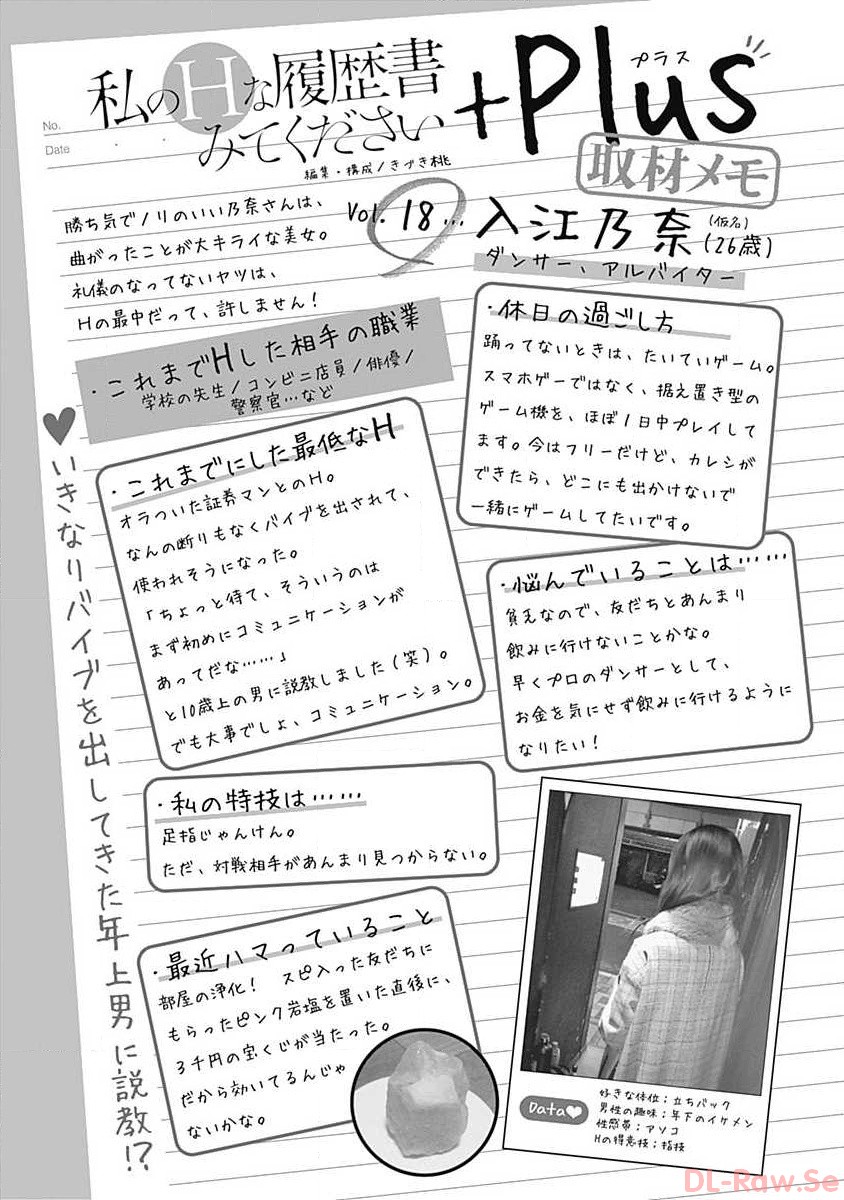 No.
Date
私のHな履歴書
みてください
+Plus
プラス
編集・構成/きづき桃
取材メモ
勝ち気でノリのいい乃奈さんは、
曲がったことが大キライな美女。
礼儀のなってないヤツは、
Hの最中だって、許しません!
Vol. 18…
入江乃奈
(仮名)
(26歳)
ダンサー、アルバイター
・これまでHした相手の職業
学校の先生/コンビニ店員/俳優/
警察官…など
・休日の過ごし方
踊ってないときは、たいていゲーム。
スマホゲーではなく、据え置き型の
ゲーム機を、ほぼ1日中プレイして
ます。今はフリーだけど、カレシが
できたら、どこにも出かけないで
一緒にゲームしてたいです。
♥いきなりバイブを出してきた年上男に説教!?
・これまでにした最低なH
オラついた証券マンとのH。
なんの断りもなくバイブを出されて、
使われそうになった。
「ちょっと待て、そういうのは
まず初めにコミュニケーションが
あってだな……」
と10歳上の男に説教しました(笑)。
でも大事でしょ、コミュニケーション。
・悩んでいることは……
貧乏なので、友だちとあんまり
飲みに行けないことかな。
早くプロのダンサーとして、
お金を気にせず飲みに行けるように
なりたい!
・私の特技は……
足指じゃんけん。
ただ、対戦相手があんまり見つからない。
・最近ハマっていること
部屋の浄化! スピ入った友だちに
もらったピンク岩塩を置いた直後に、
3千円の宝くじが当たった。
だから効いてるんじゃ
ないかな。
Data♥
好きな体位:立ちバック
男性の趣味:年下のイケメン
性感帯:アソコ
Hの得意技:指技
DL-Raw.Se